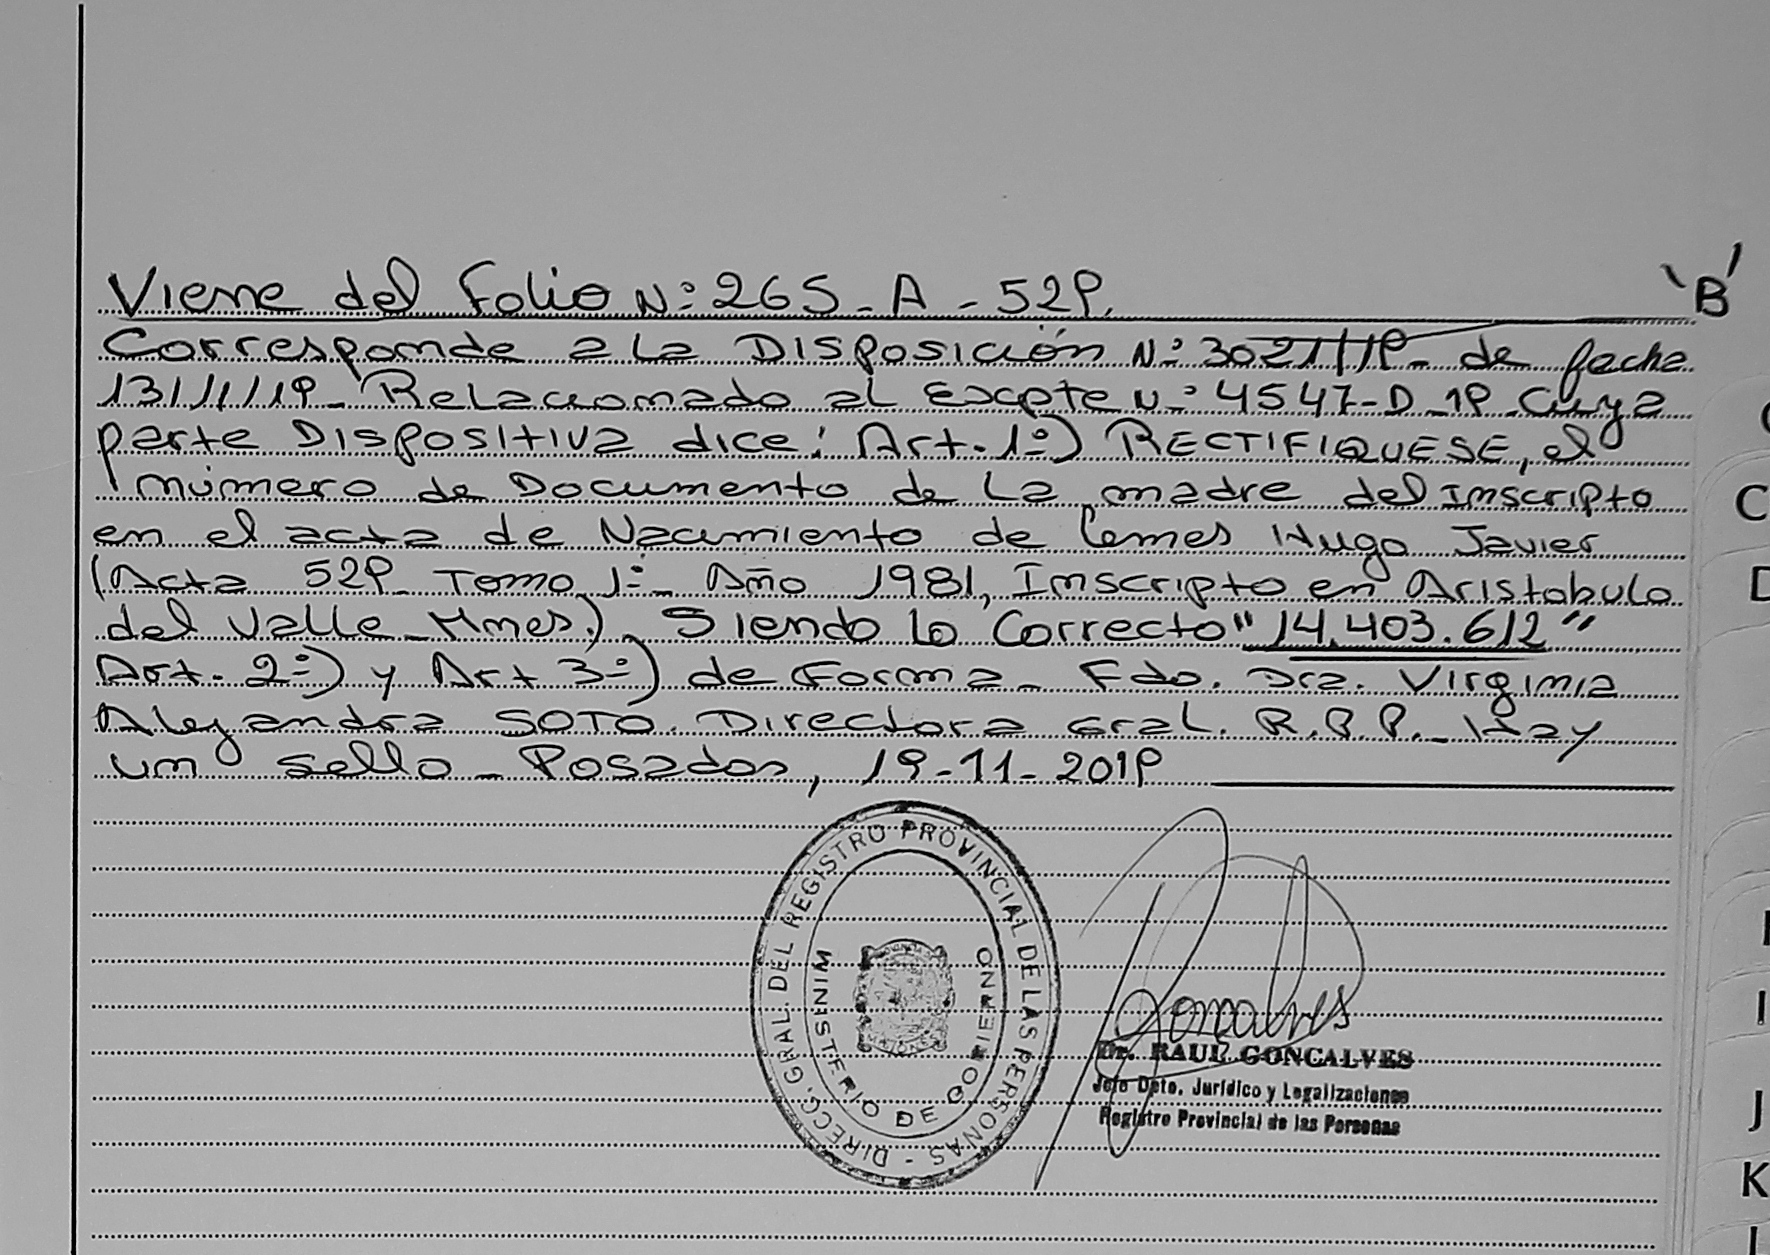 Viene del Folio Nº 265 - A - 529.
"B"
Corresponde a la Disposición Nº 3021/19 - de fecha
13/11/19 - Relacionado al Expte Nº 4547-D-19 Cuya
parte Dispositiva dice: Art. 1º) RECTIFIQUESE, el
número de Documento de La madre del Inscripto
en el acta de Nacimiento de Lemes Hugo Javier
(Acta 529 - Tomo 1º - Año 1981, Inscripto en Aristobulo
del Valle - Mnes), Siendo lo Correcto "14.403.612"
Art. 2º) y Art 3º) de Forma - Fdo. Dra. Virginia
Alejandra SOTO. Directora Gral. R.P.P. - Hay
un sello - Posadas, 19-11-2019
DIRECC. GRAL. DEL REGISTRO PROVINCIAL DE LAS PERSONAS -
MINISTERIO DE GOBIERNO
Goncalves
Dr. RAUL GONCALVES
Jefe Dpto. Jurídico y Legalizaciones
Registro Provincial de las Personas
C
D
I
J
K